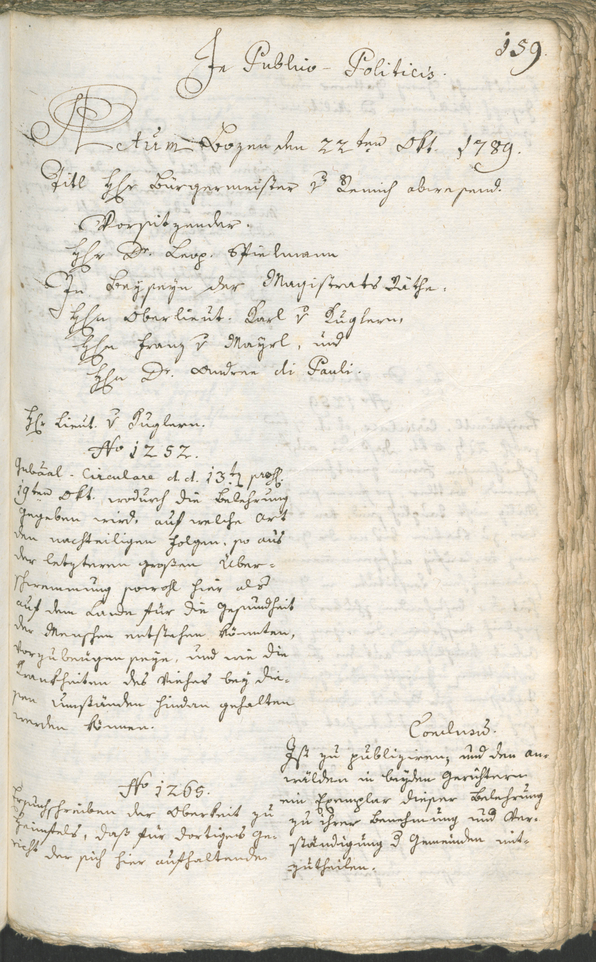 159.
In Publico-Politicis.
Actum Bozen den 22ten Okt. 1789.
Titl Hhr Bürgermeister v Remich abwesend.
Vorsitzender.
Hhr Dr. Leop. Spielmann
In Beyseyn der Magistrats Räthe.
Hhn Oberlieut. Karl v Kuglern,
Hhn Franz v Mayrl, und
Hhn Dr. Andree di Pauli.
Hhr Lieut. v Kuglern.
No 1252.
Gubĕal-Circulare d. d. 13t psth.
19ten Okt. wodurch die Belehrung
gegeben wird, auf welche Art
den nachteiligen Folgen, so aus
der letzteren großen Über-
schwemmung sowohl hier als
auf dem Lande für die Gesundheit
der Menschen entstehen könnten,
vorzubeugen seye, und wie die
Krankheiten des Viehes bey die-
sen Umständen hindan gehalten
werden können.
Conclusū.
Ist zu publiziren, und den An-
wälden in beyden Gerichtern
ein Exemplar dieser Belehrung
zu ihrer Benehmung und Ver-
ständigung d Gemeinden mit-
zutheilen.
No 1265.
Ersuchschreiben der Oberkeit zu
Heimfels, daß für dortiges Ge-
richt der sich hier aufhaltende